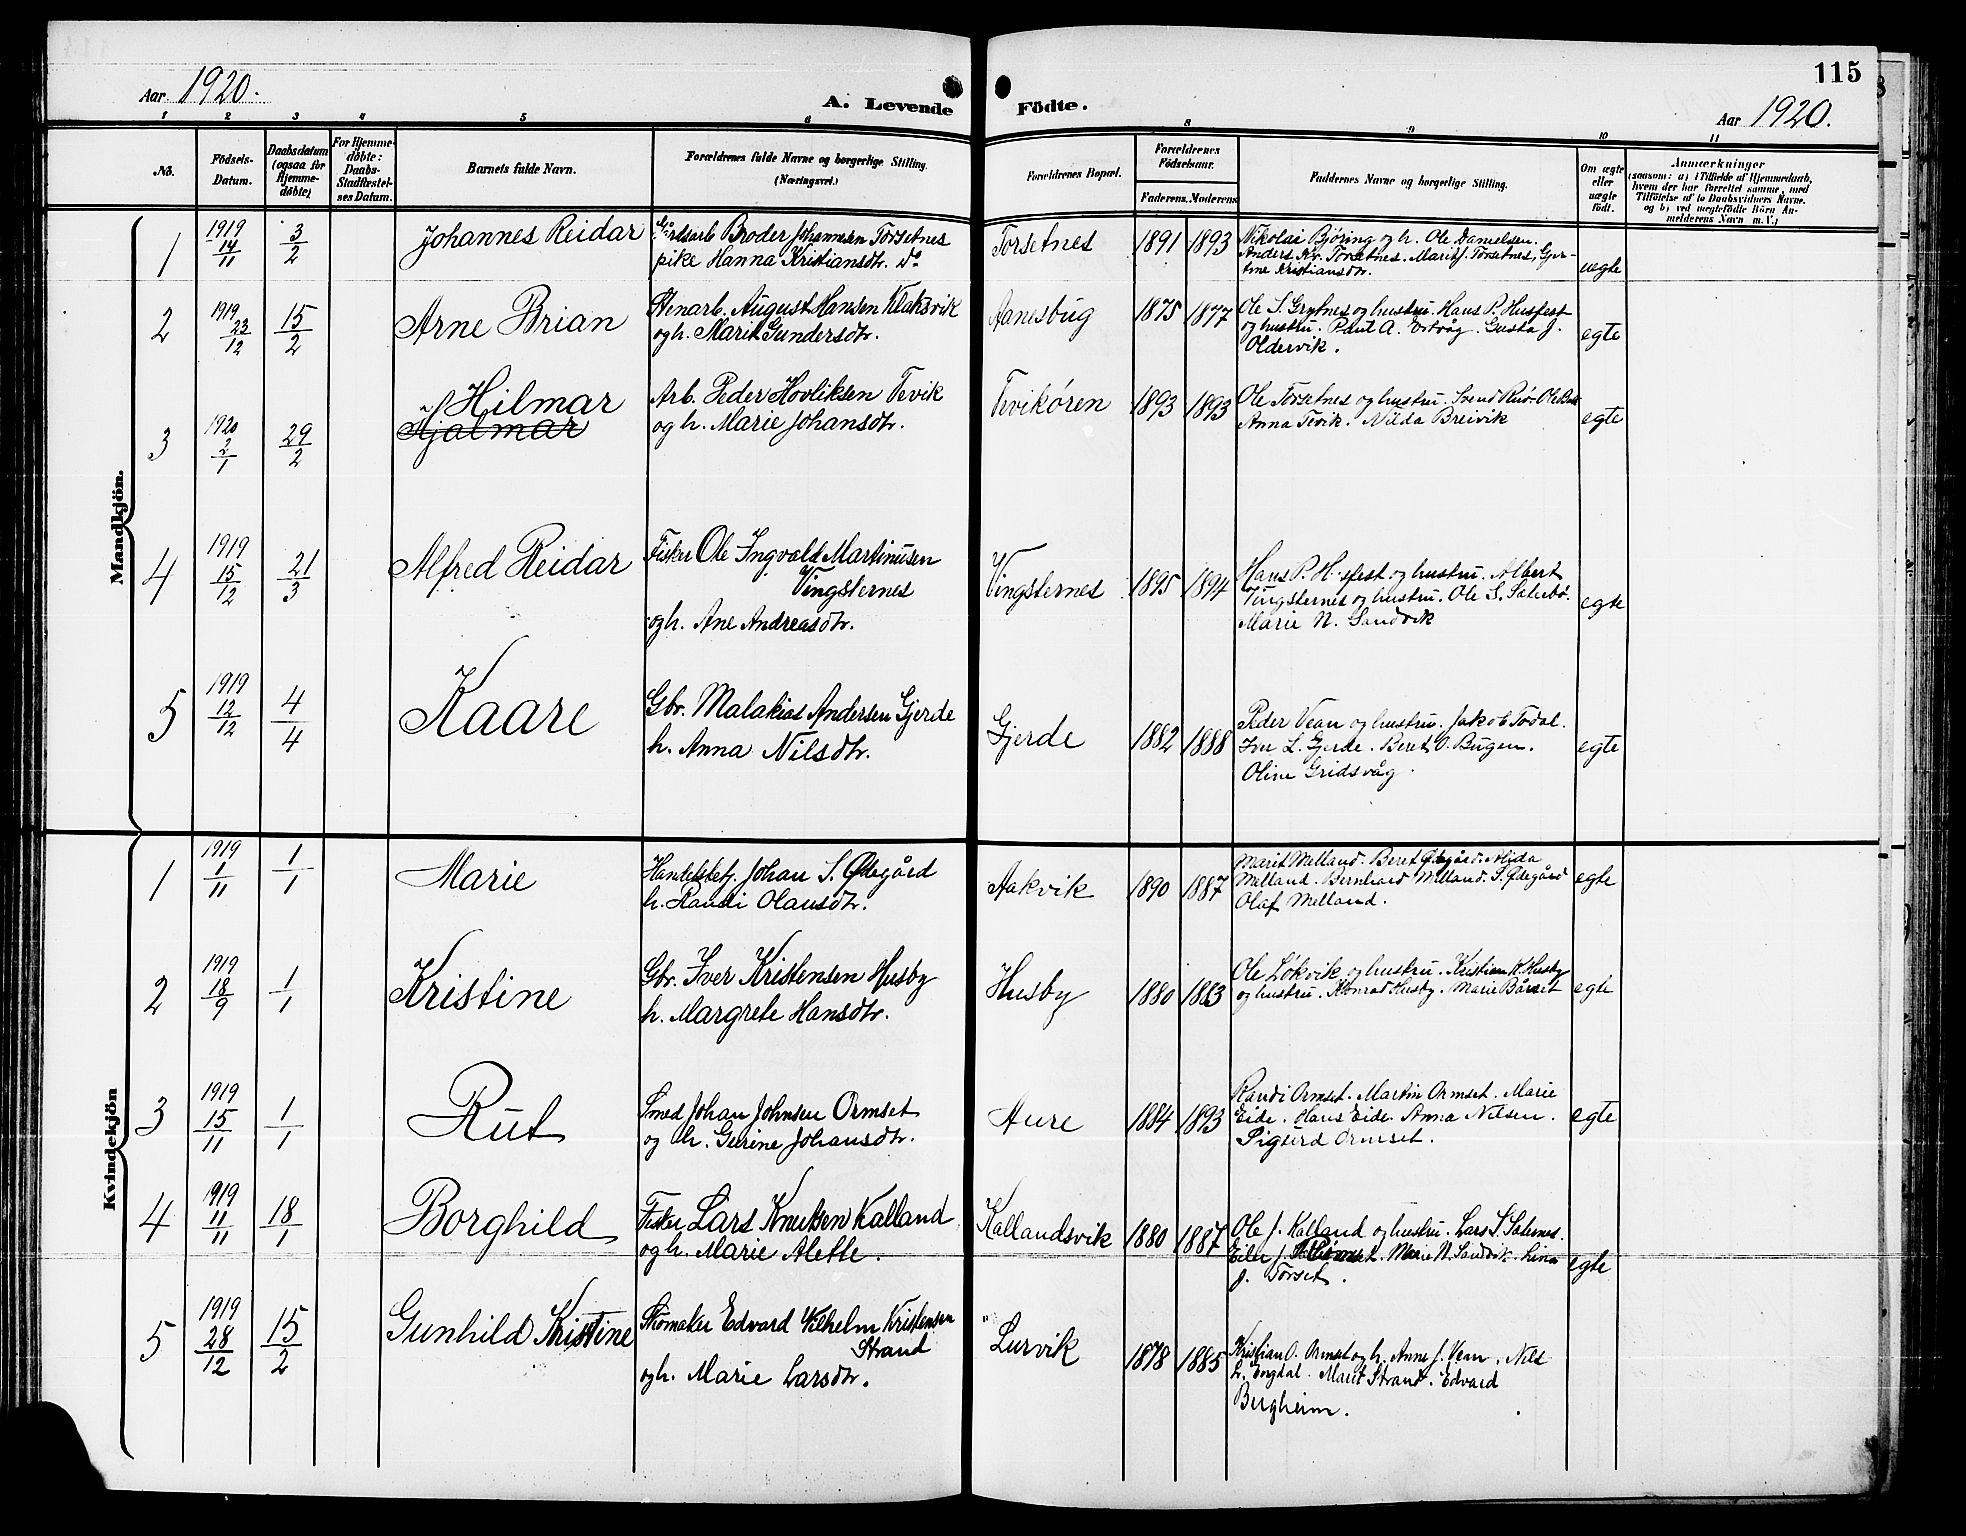 115
Aar 1920.
A. Levende Födte.
Aar 1920.
1 2 3 4 5 6 8 9 10 11
No.
Födsels-Datum.
Daabsdatum (ogsaa for Hjemmedöbte)
For Hjemmedöbte: Daabs-Stadfæstelses Datum.
Barnets fulde Navn.
Forældrenes fulde Navne og borgerlige Stilling. (Næringsvei.)
Forældrenes Bopæl.
Forældrenes Födselsaar.
Faderens. Moderens
Faddernes Navne og borgerlige Stilling.
Om ægte eller uægte födt.
Anmærkninger
(saasom: a) i Tilfælde af Hjemmedaab,
hvem der har forrettet samme, med
Tilföielse af to Daabsvidners Navne.
og b) ved uægtefödte Börn An-
melderens Navn m. V.)
Mandkjön.
1 1919 14/11 3/2 Johannes Reidar
Broder Johannesen Torsetnes
pike Hanna Kristiansdtr. do
Torsetnes 1891 1893
Nikolai Bjøring og h. Ole Danielsen.
Anders Kr. Torsetnes. Marit J. Torsetnes, Gjer-
tine Kristiansdtr.
uegte
2 1919 23/12 15/2 Arne Brian
Stenarb. August Hansen Klaksvik
og h. Marit Gundersdtr.
Aanesbug 1875 1877
Ole S. Grytnes og hustru. Hans P. Husfest
og hustru. Paul A. Ertvåg. Gusta J.
Oldervik.
egte
3 1920 2/1 29/2 Hilmar
Hjalmar
Arb. Peder Hovliksen Tevik
og h. Marie Johansdtr.
Tevikøren 1893 1893
Ole Torsetnes og hustru. Svend
Anna Tevik. Nilda Breivik
egte
4 1919 15/12 21/3 Alfred Reidar
Fisker Ole Ingvald Martinusen
Vingsternes
og h. Ane Andreasdtr.
Vingsternes 1895 1894
Hans P. Husfest og hustru. Albert
Vingsternes og hustru. Ole S.
Marie N. Sandvik
egte
5 1919 12/12 4/4 Kaare
Gbr. Malakias Andersen Gjerde
h. Anna Nilsdtr.
Gjerde 1882 1888
Peder Vean og hustru. Jakob Todal.
Iver L. Gjerde. Beret O. Bugen.
Oline Gridsvåg.
egte
Kvindekjön
1 1919 1/11 1/1 Marie
Handelsbetj. Johan S. Ødegård
h. Randi Olausdtr.
Aakvik 1890 1887
Marit Melland. Beret Ødegård. Alida
Melland. Bernhard Melland. S. Ødegård
Olaf Melland.
egte
2 1919 18/9 1/1 Kristine
Gbr. Iver Kristensen Husby
h. Margrete Hansdtr.
Husby 1880 1883
Ole Løkvik og hustru. Kristian K. Husby
og hustru. Konrad Husby. Marie Bårset
egte
3 1919 15/11 1/1 Rut
Smed Johan Johnsen Ormset
og h. Gurine Johansdtr.
Aure 1884 1893
Randi Ormset. Martin Ormset. Marie
Eide. Hans Eide. Anna Nilsen.
Sigurd Ormset.
egte
4 1919 11/11 18/1 Borghild
Fisker Lars Knutsen Kalland
og h. Marie Alette.
Kallandsvik 1880 1887
Ole J. Kalland og hustru. Lars S.
Eiler J. Marie N. Sandvik. Lina
J. Torset.
egte
5 1919 28/12 15/2 Gunhild Kristine
Skomaker Edvard Vilhelm Kristensen
Strand
og h. Marie Larsdtr.
Lurvik 1878 1885
Kristian O. Ormset og h. Anne J. Vean. Nils
L. Torgdal. Marit Strand. Edvard
Bergheim.